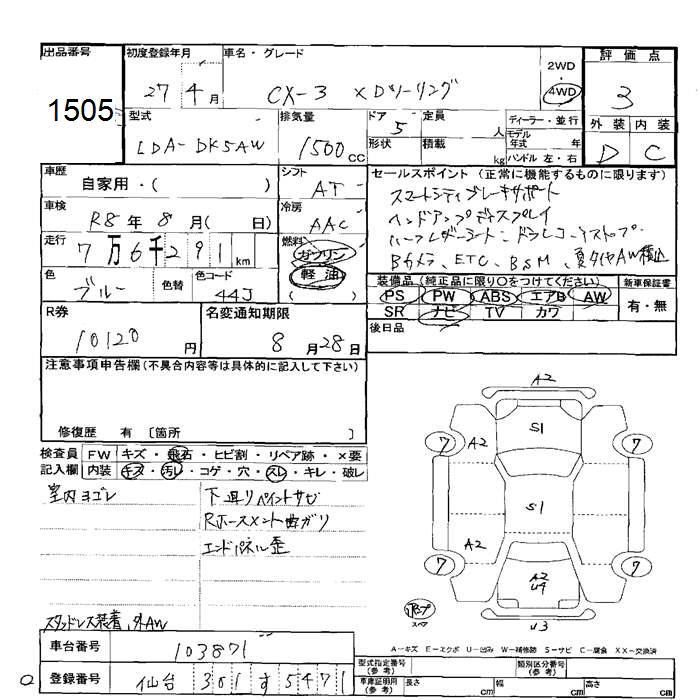 出品番号 初度登録年月 車名・グレード 評価点
1505 27年4月 CX-3 XDツーリング 2WD 4WD 3
型式 排気量 ドア 定員 ディーラー・並行 外装 内装
LDA-DK5AW 1500cc 5 人 モデル年式 年 D C
形状 積載 kg ハンドル 左・右
車歴 シフト セールスポイント(正常に機能するものに限ります)
自家用・( ) AT スマートシティブレーキサポート
車検 冷房 ヘッドアップディスプレイ
R8年8月( 日) AAC ハーフレザーシート・ドラレコ・アイストップ
走行 燃料
7万6千291km ガソリン Bカメラ、ETC、BSM、夏タイヤAW積込
色 色替 色コード 軽油 装備品(純正品に限り○をつけてください) 新車保証書
ブルー 44J ( ) PS PW ABS エアB AW 有・無
SR ナビ TV カワ
R券 名変通知期限 後日品
10120円 8月28日
注意事項申告欄(不具合内容等は具体的に記入して下さい)
修復歴 有 〔箇所 〕
検査員記入欄 FW キズ・飛石・ヒビ割・リペア跡・×要
内装 キズ・汚レ・コゲ・穴・スレ・キレ・破レ
室内ヨゴレ 下廻りペイントサビ
Rホースメント曲ガリ
エンドパネル歪
スタッドレス装着、外AW
A2
S1
7 A2 7
S1
A2
7 A2 U4 7
U3
スペア
A-キズ E-エクボ U-凹み W-補修跡 S-サビ C-腐食 XX-交換済
車台番号 103871
登録番号 仙台 301 す 5471
型式指定番号(参考) 類別区分番号(参考)
車庫証明用(参考) 長さ cm 幅 cm 高さ cm